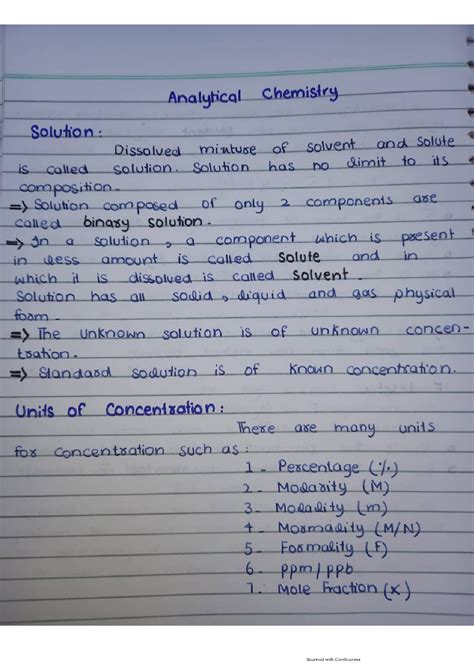 Analytical Chemistry
Solution :
Dissolved mixture of solvent and solute
is called solution. Solution has no limit to its
composition.
=> Solution composed of only 2 components are
called binary solution.
=> In a solution, a component which is present
in less amount is called solute and in
which it is dissolved is called solvent.
Solution has all solid, liquid and gas physical
form.
=> The unknown solution is of unknown concen-
tration.
=> Standard solution is of known concentration.
Units of Concentration :
There are many units
for concentration such as :
1 - Percentage (%)
2 - Molarity (M)
3 - Molality (m)
4 - Normality (M/N)
5 - Formality (F)
6 - ppm/ppb
7. Mole Fraction (x)
Scanned with CamScanner